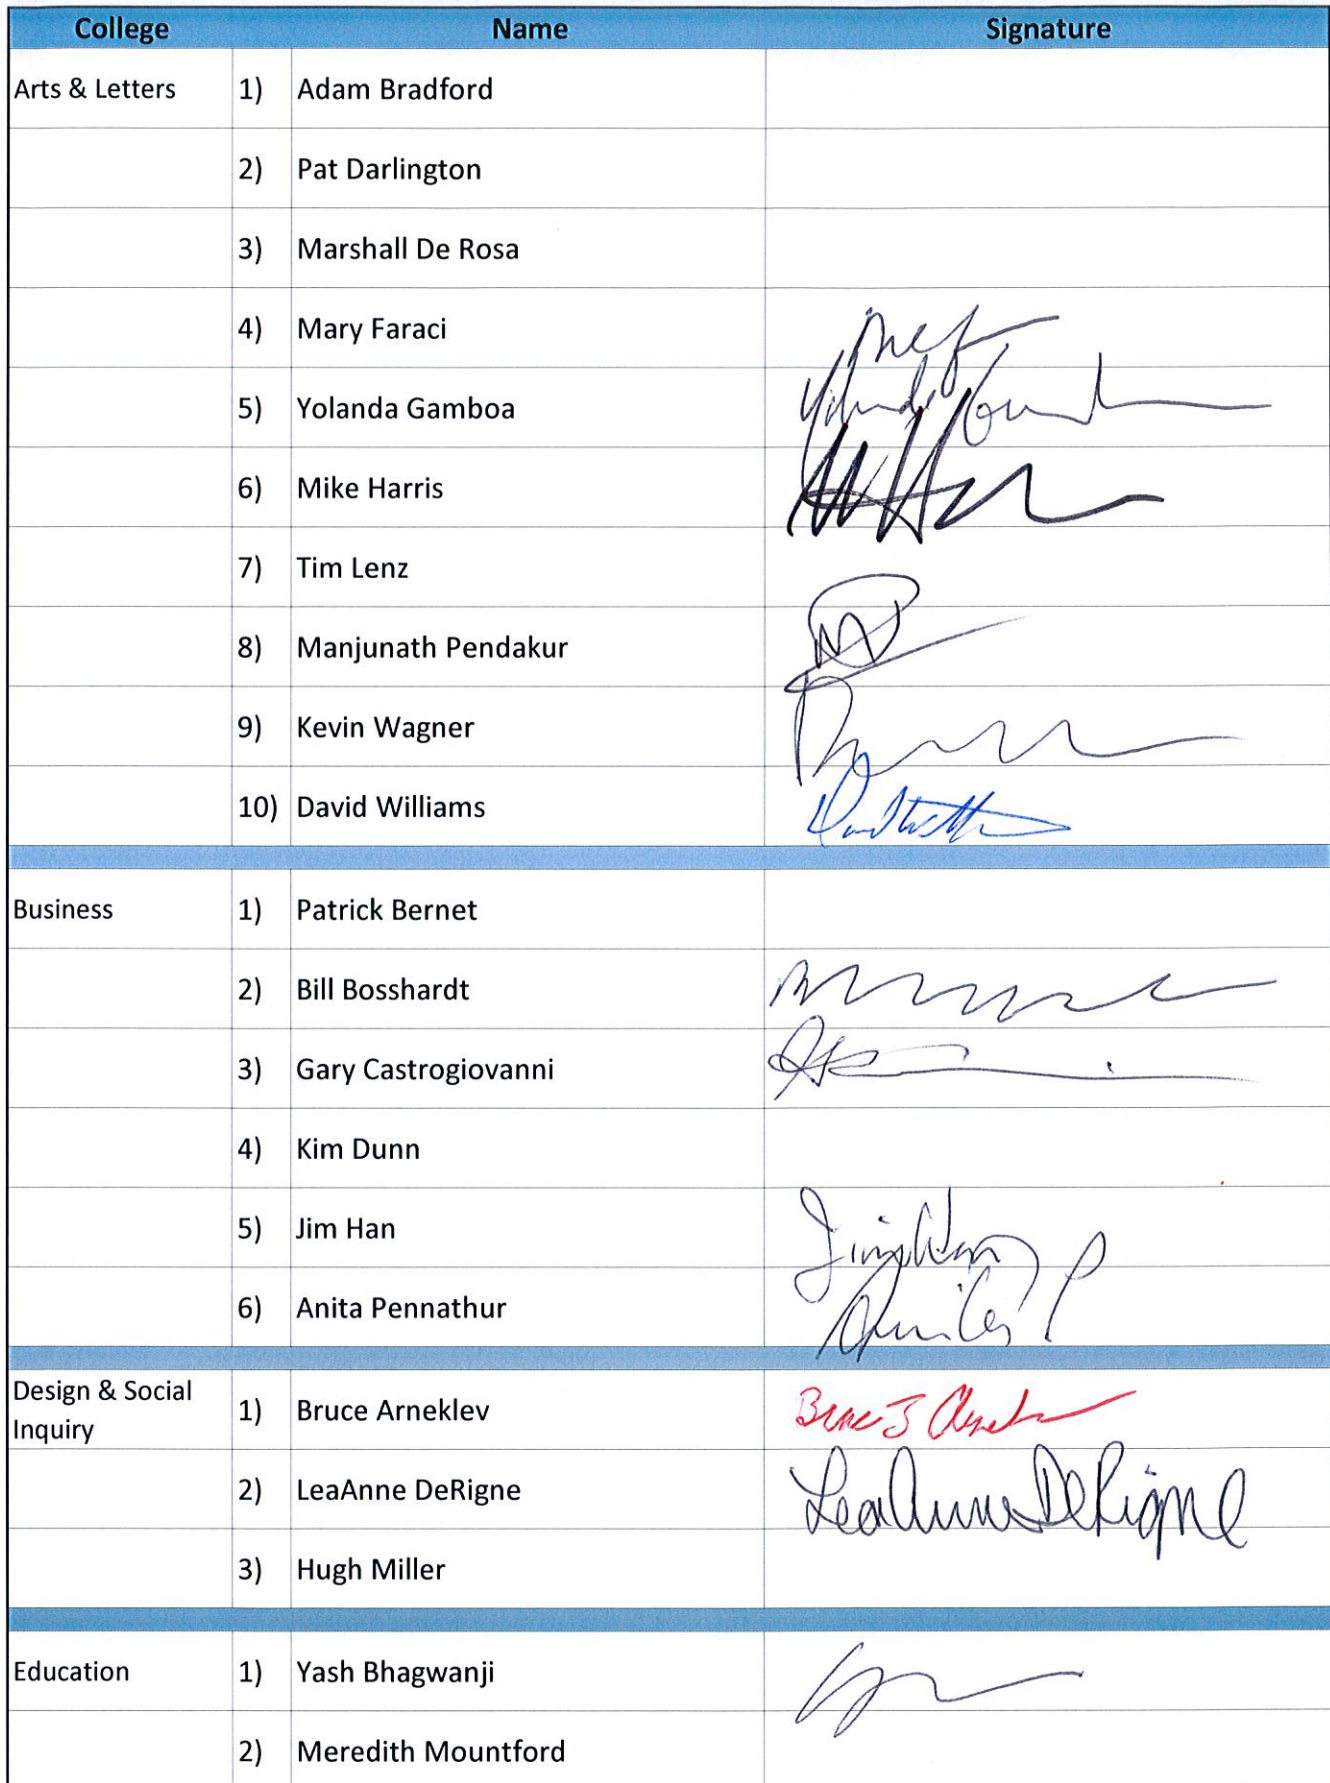 College Name Signature
Arts & Letters 1) Adam Bradford
2) Pat Darlington
3) Marshall De Rosa
4) Mary Faraci
5) Yolanda Gamboa
6) Mike Harris
7) Tim Lenz
8) Manjunath Pendakur
9) Kevin Wagner
10) David Williams
Business 1) Patrick Bernet
2) Bill Bosshardt
3) Gary Castrogiovanni
4) Kim Dunn
5) Jim Han
6) Anita Pennathur
Design & Social
Inquiry 1) Bruce Arneklev
2) LeaAnne DeRigne LeaAnne DeRigne
3) Hugh Miller
Education 1) Yash Bhagwanji
2) Meredith Mountford